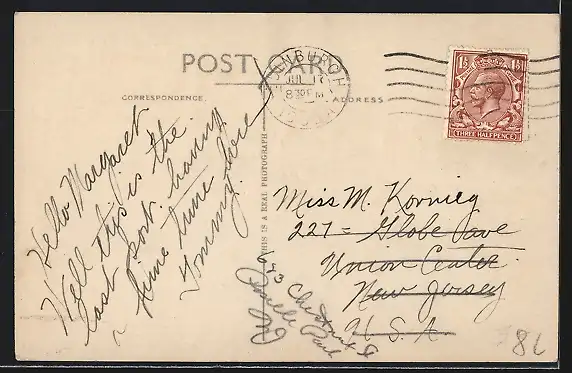 POST CARD
CORRESPONDENCE.
ADDRESS
EDINBURGH
8 30 PM
1½
1½
THREE HALFPENCE
THIS IS A REAL PHOTOGRAPH
Hello Margaret
Well this is the
last port. having
fine time here
Tommy.
Miss M. Kornieg
227 = Globe Ave
Union Center
New Jersey
U.S.A
693 Chestnut St
Roselle Park
NJ
86